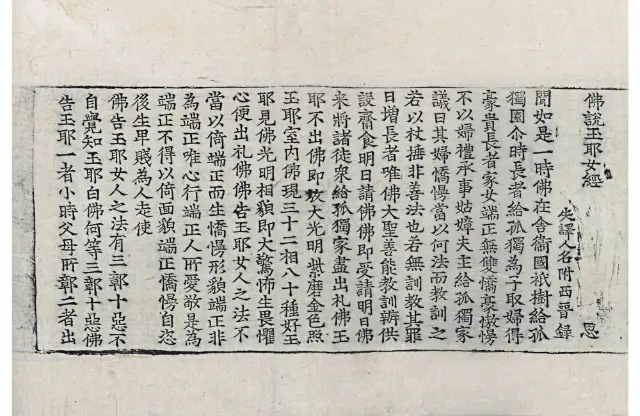 佛說玉耶女經
失譯人名附西晉錄 思
聞如是一時佛在舍衛國祇樹給孤
獨園尒時長者給孤獨為子取婦得
豪貴長者家女端正無雙憍豪慠慢
不以婦禮承事姑嫜夫主給孤獨家
議曰其婦憍慢當以何法而教訓之
若以杖捶非善法也若無訓教其罪
日增長者唯佛大聖善能教訓辦供
設齋食明日請佛佛即受請明日佛
來將諸徒衆給孤獨家盡出礼佛玉
耶不出佛即放大光明紫磨金色照
玉耶室內佛現三十二相八十種好玉
耶見佛光明相貌即大驚怖生畏懼
心便出礼佛佛告玉耶女人之法不
當以倚端正而生憍慢形貌端正非
為端正唯心行端正人所愛敬是為
端正不得以倚面貌端正憍慢自恣
後生卑賤為人走使
佛告玉耶女人之法有三鄣十惡不
自覺知玉耶白佛何等三鄣十惡佛
告玉耶一者小時父母所鄣二者出